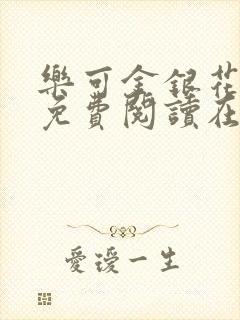 樂可金銀花
免費閱讀在
愛瑷一生